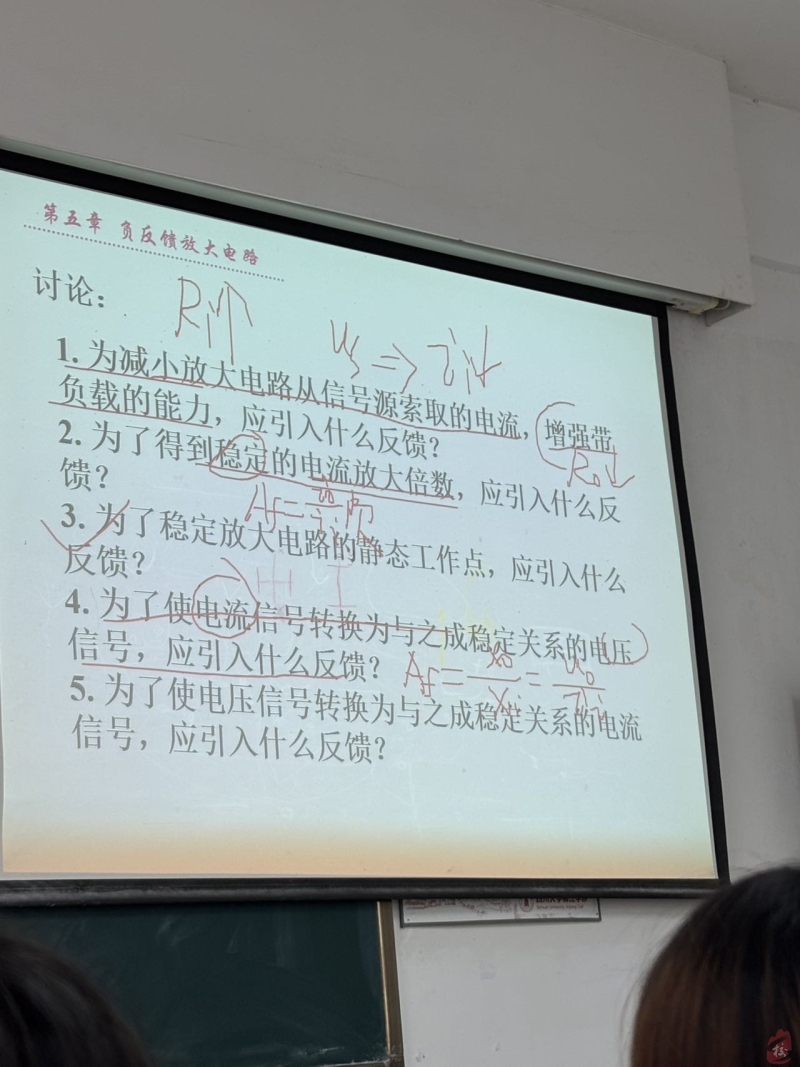 第五章 负反馈放大电路
讨论：
Ri↑
us ⇒ ii↓
1. 为减小放大电路从信号源索取的电流，增强带
负载的能力，应引入什么反馈？
Ro↓
2. 为了得到稳定的电流放大倍数，应引入什么反
馈？
Af=
3. 为了稳定放大电路的静态工作点，应引入什么
反馈？
4. 为了使电流信号转换为与之成稳定关系的电压
信号，应引入什么反馈？
Af = xo/xi = uo/ii
5. 为了使电压信号转换为与之成稳定关系的电流
信号，应引入什么反馈？